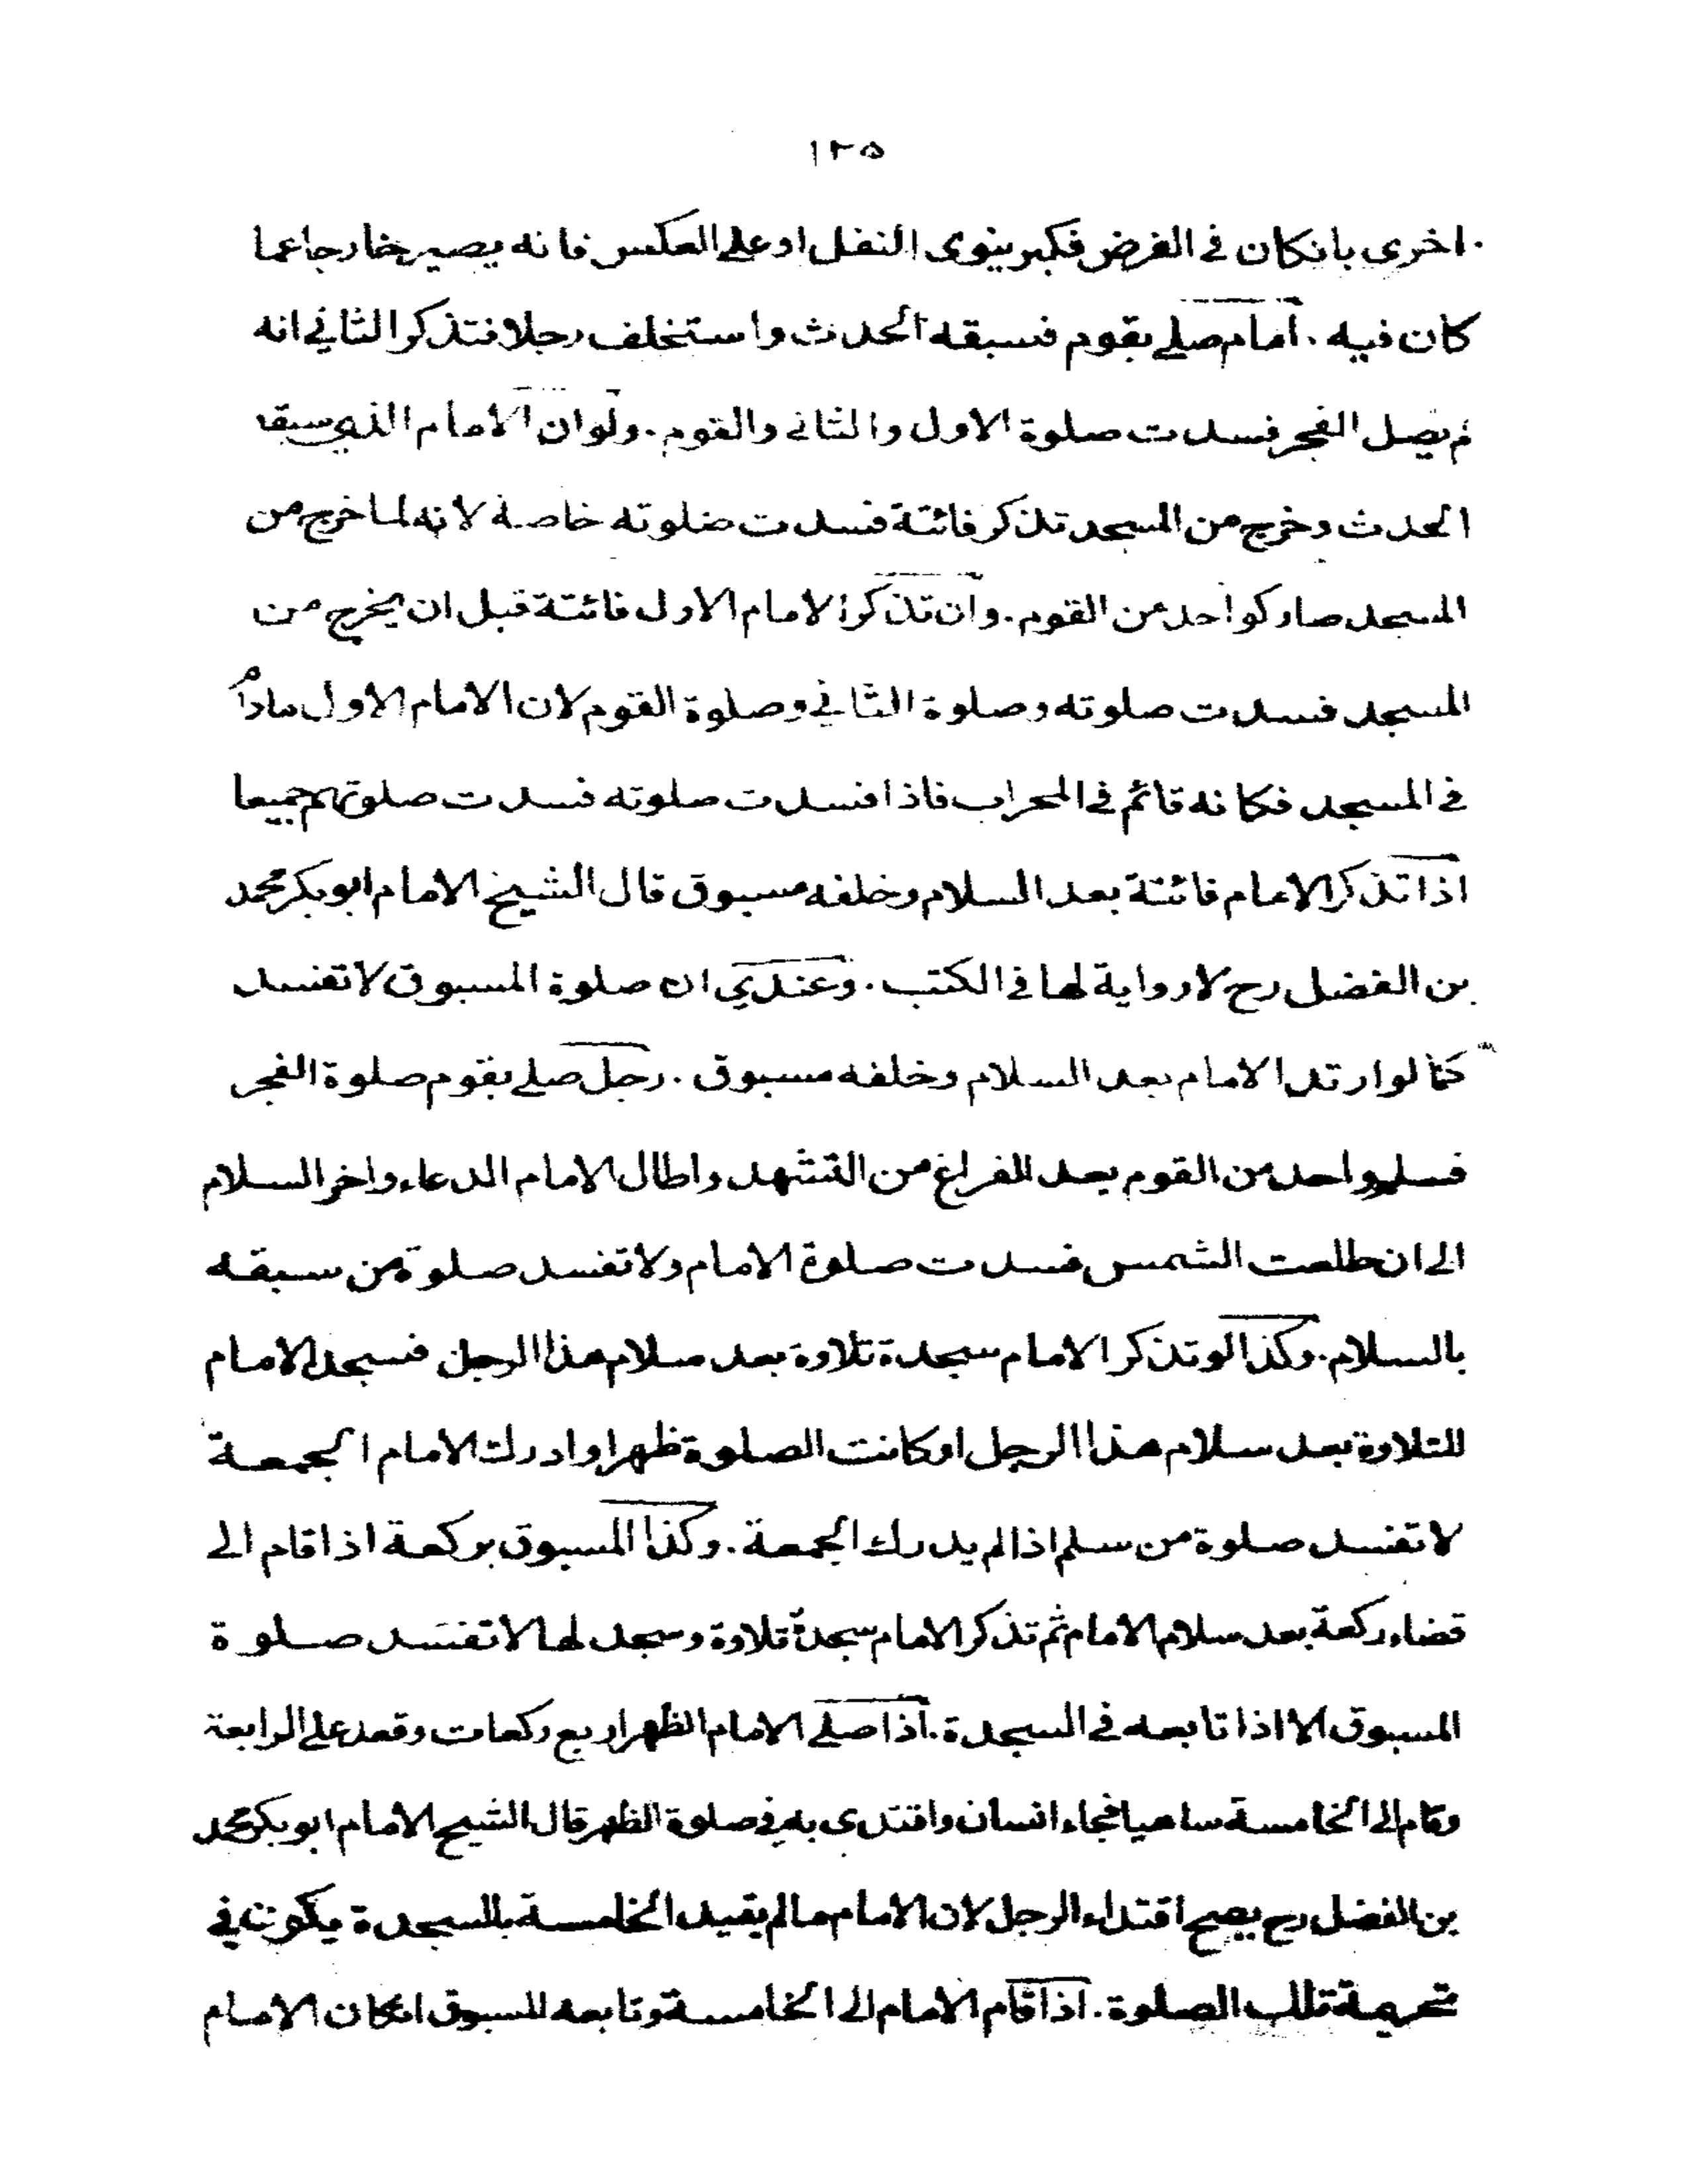 ١٢٥
اخرى بانكان فى الفرض فكبر ينوى النفل او على العكس فانه يصير خارجا عما
كان فيه . امام صلى بقوم فسبقه الحدث واستخلف رجلا فتذكر الثاني انه
لم يصل الفجر فسدت صلوة الاول والثانى والقوم . ولو ان الامام الذي سبقه
الحدث وخرج من المسجد تذكر فائتة فسدت صلوته خاصة لانه لما خرج من
المسجد صار كواحد من القوم . وان تذكر الامام الاول فائتة قبل ان يخرج من
المسجد فسدت صلوته وصلوة الثاني وصلوة القوم لان الامام الاول مادام
فى المسجد فكانه قائم فى المحراب فاذا فسدت صلوته فسدت صلوتهم جميعا
اذا تذكر الامام فائتة بعد السلام وخلفه مسبوق قال الشيخ الامام ابو بكر محمد
بن الفضل رح لا رواية لها فى الكتب . وعندي ان صلوة المسبوق لا تفسد
كما لو ارتد الامام بعد السلام وخلفه مسبوق . رجل صلى بقوم صلوة الفجر
فسلم واحد من القوم بعد الفراغ من التشهد واطال الامام الدعاء واخر السلام
الى ان طلعت الشمس فسدت صلوة الامام ولا تفسد صلوة من سبقه
بالسلام . وكذا لو تذكر الامام سجدة تلاوة بعد سلام هذا الرجل فسجد الامام
للتلاوة بعد سلام هذا الرجل او كانت الصلوة ظهرا وادرك الامام الجمعة
لا تفسد صلوة من سلم اذا لم يدرك الجمعة . وكذا المسبوق بركعة اذا قام الى
قضاء ركعة بعد سلام الامام ثم تذكر الامام سجدة تلاوة وسجد لها لا تفسد صلوة
المسبوق الا اذا تابعه فى السجدة . اذا صلى الامام الظهر اربع ركعات وقعد على الرابعة
وقام الى الخامسة ساهيا فجاء انسان واقتدى به فى صلوة الظهر قال الشيخ الامام ابو بكر محمد
بن الفضل رح يصح اقتداء الرجل لان الامام ما لم يقيد الخامسة بالسجدة يكون فى
تحريمة تلك الصلوة . اذا قام الامام الى الخامسة وتابعه المسبوق انكان الامام